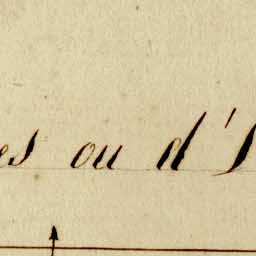 es ou d'I